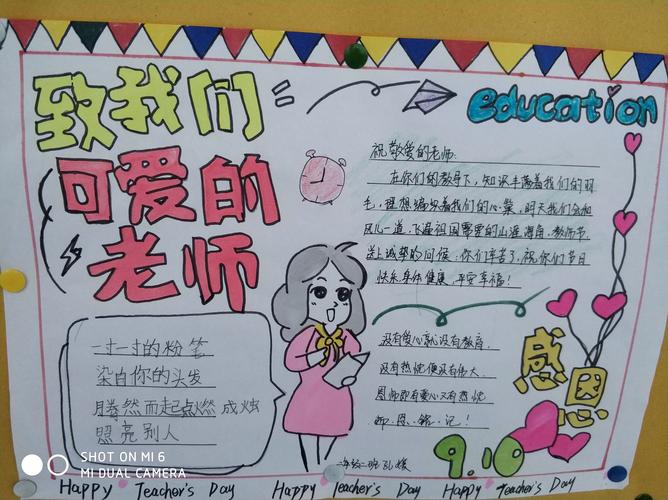 致我们
可爱的
老师
education
祝敬爱的老师:
在你们的教导下,知识丰荡着我们的羽
毛,理想编织着我们的心,棠,明天我们会相
风儿一道,飞遍祖国需要的山涯海角,教师节
送上诚挚的问候:你们辛苦了,祝你们节日
快乐身体健康,平安幸福!
一寸一寸的粉笔
染白你的头发
腾然而起点燃成烛
照亮别人
没有爱心就没有教育
没有热忱便没有伟大
恩师既有爱心又有热忱
师.恩.铭.记!
感
恩
9.10
SHOT ON MI 6
MI DUAL CAMERA
Happy Teacher's Day Happy Teacher's Day Happy Teacher's Day